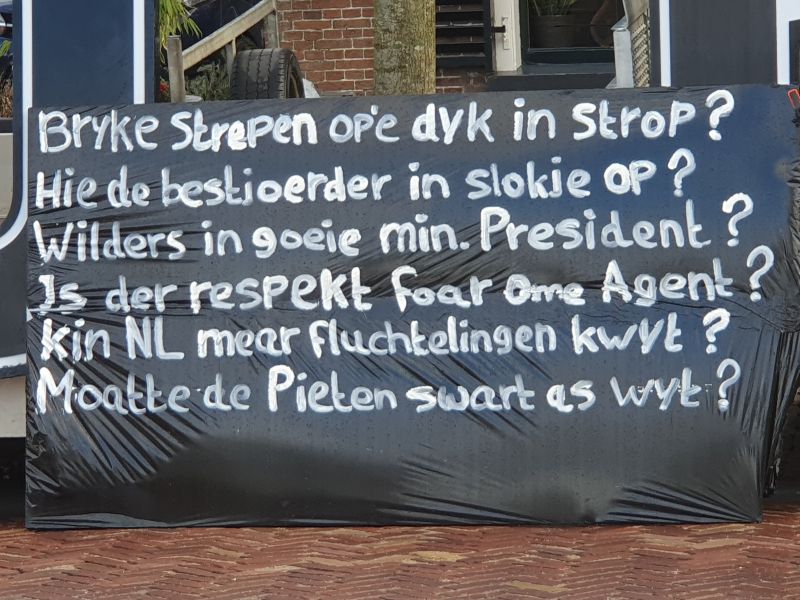 Bryke Strepen op'e dyk in Strop?
Hie de bestjoerder in slokje op?
Wilders in goeie min. President?
Is der respekt foar Ome Agent?
Kin NL mear fluchtelingen kwyt?
Moatte de Pieten swart as wyt?